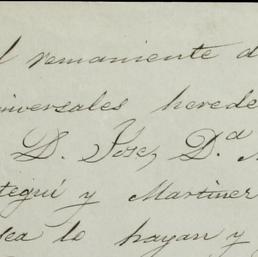 l remaniente d
niversales herede
D. Jose, D.ª
tegui y Martinez
sea lo hayan y